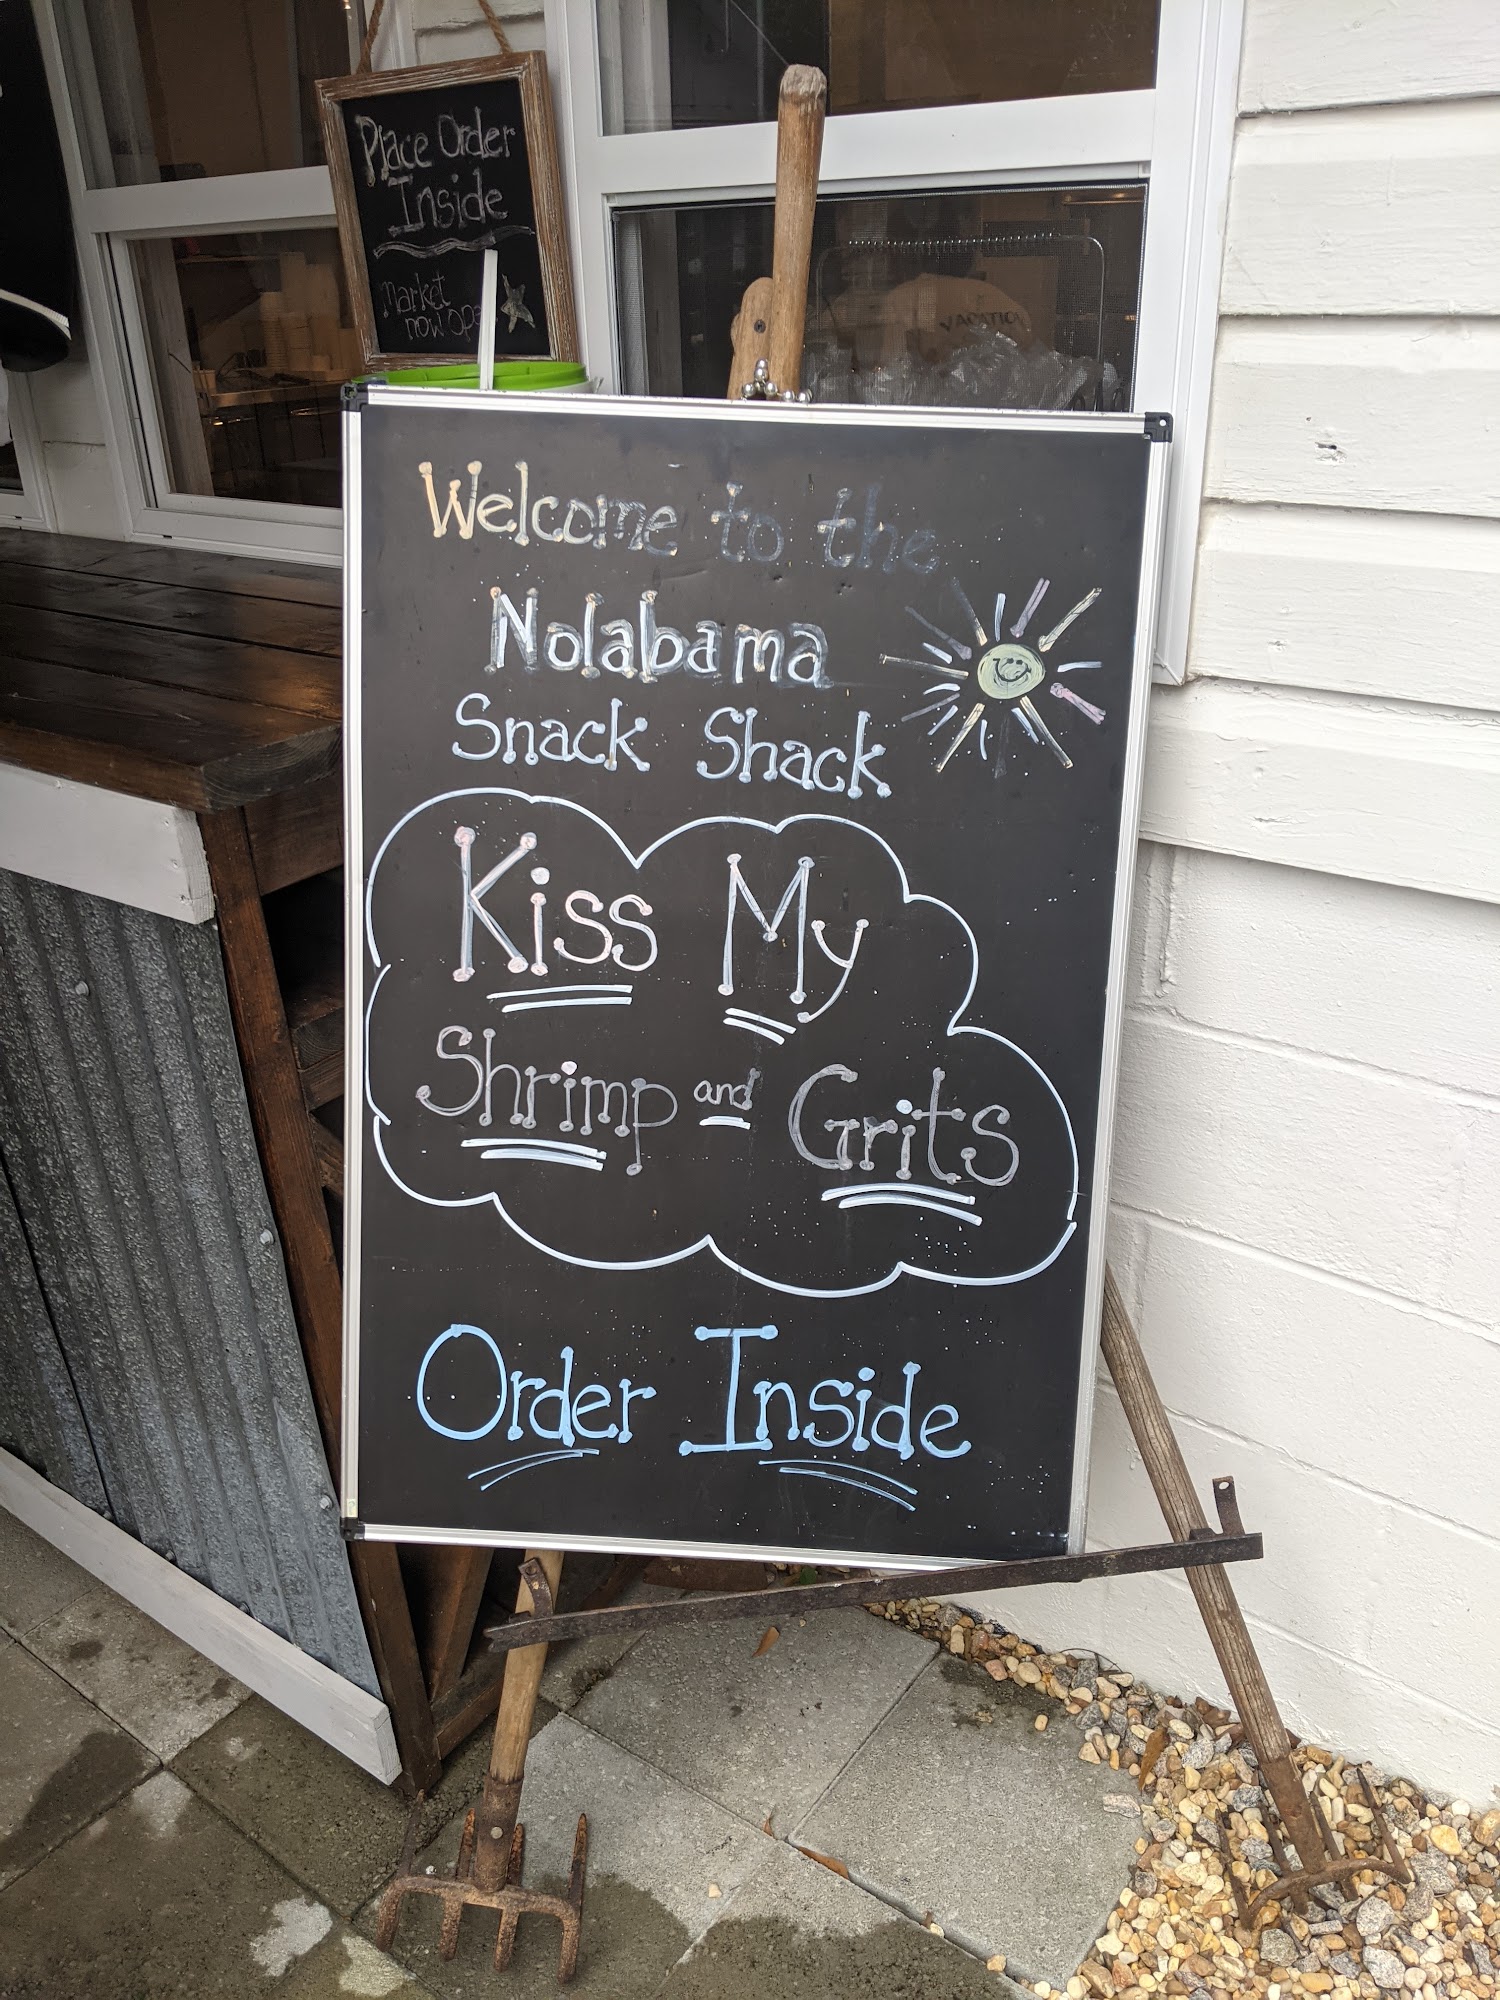 Place Order
Inside
Market
now
Welcome to the
Nolabama
Snack Shack
Kiss My
Shrimp and Grits
Order Inside